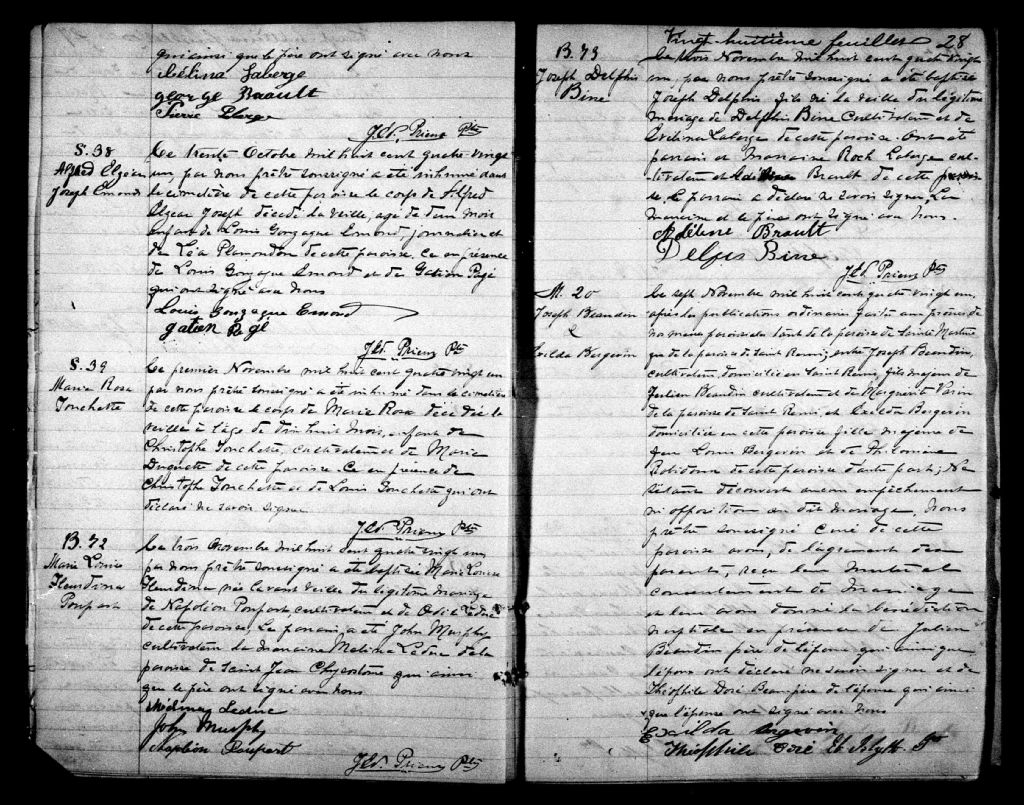 qui ainsi que le père ont signé avec nous
Laberge
George Brault
Pierre
J.Ed. Prieur Ptre
S. 38
Elzéar
Joseph Emond
Le trente Octobre mil huit cent quatre vingt
un, par nous prêtre soussigné a été inhumé dans
le cimetière de cette paroisse le corps de Alfred
Elzéar Joseph décédé la veille, agé de d'un mois
enfant de Louis Gonzague Emond, journalier et
de Léa Plamondon de cette paroisse. Ce en présence
de Louis Gonzague Emond et de Gatien Pagé
qui ont signé avec nous
Louis Gonzague Emond
gatien Pagé
J.Ed. Prieur Ptre
S. 39
Marie Rosa
Touchette
Le premier Novembre mil huit cent quatre vingt un
par nous prêtre soussigné a été inhumé dans le cimetière
de cette paroisse le corps de Marie Rosa décédée la
veille à l'âge de dix huit mois, enfant de
Christophe Touchette, cultivateur et de Marie
Duquette de cette paroisse. Ce en présence de
Christophe Touchette et de Louis Touchette qui ont
déclaré ne savoir signer
J.Ed. Prieur Ptre
B. 72
Marie Louise
Fleurdina
Poupart
Le trois Novembre mil huit cent quatre vingt un,
par nous prêtre soussigné a été baptisée Marie Louise
Fleurdina née la veille du légitime mariage
de Napoléon Poupart cultivateur et de Leduc
de cette paroisse. Le parrain a été John Murphy
cultivateur la marraine Melina Leduc de la
paroisse de Saint Jean Chrysostome qui ainsi
que le père ont signé avec nous
Leduc
John Murphy
Poupart
J.Ed. Prieur Ptre
Vingt huitième feuillet 28
B. 73
Joseph Delphis
Bine
Le trois Novembre mil huit cent quatre vingt
un, par nous prêtre soussigné a été baptisé
Joseph Delphis fils né la veille du légitime
mariage de Delphis Bine Cultivateur et de
Laberge de cette paroisse. Ont été
parrain et Marraine Roch Laberge cul-
tivateur et Brault de cette paroisse
le parrain a déclaré ne savoir signer La
marraine et le père ont signé avec nous.
Brault
Delfis Bine
J.Ed. Prieur Ptre
M. 20
Joseph Beaudin
&
Exilda Bergevin
Le sept Novembre mil huit cent quatre vingt un,
après les publications ordinaires faites aux prônes de
nos messes paroissiales tant de la paroisse de Sainte Martine
que de la paroisse de Saint Remi; entre Joseph Beaudin,
cultivateur, domicilié en Saint Remi, fils majeur de
Julien Beaudin cultivateur et de Marguerite
de la paroisse de Saint Remi, et Exilda Bergevin
domiciliée en cette paroisse fille majeure de
feu Louis Bergevin et de Philomène
Robidoux de cette paroisse d'autre part; Ne
s'étant découvert aucun empêchement
ni opposition au dit mariage, Nous
prêtre soussigné Curé de cette
paroisse avons, de l'agrément des
parents, reçu leur mutuel
consentement de mariage
et leur avons donné la bénédiction
nuptiale en présence de Julien
Beaudin père de l'époux qui ainsi que
l'époux ont déclaré ne savoir signer et de
Théophile Doré Beau père de l'épouse qui ainsi
que l'épouse ont signé avec nous
Exzilda Bergevin
Théophile Doré